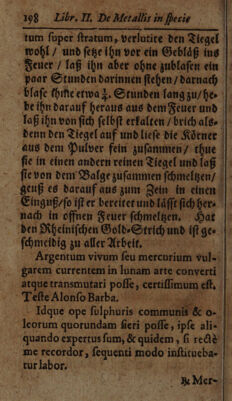 198 Libr. II. De Metallis in specie
tum super stratum, verlutire den Tiegel
wohl / und setze ihn vor ein Gebläß ins
Feuer / laß ihn aber ohne zublasen ein
paar Stunden darinnen stehen / darnach
blase etwa ¾. Stunden lang zu / he-
be ihn darauf heraus aus dem Feuer und
laß ihn von sich selbst erkalten / brich als-
denn den Tiegel auf und liese die Körner
aus dem Pulver fein zusammen / thue
sie in einen andern reinen Tiegel und laß
sie von dem Balge zusammen schmeltzen /
geuß es darauf aus zum Zein in einen
Einguß / so ist er bereitet und lässt sich her-
nach in offnen Feuer schmeltzen. Hat
den Rheinischen Gold-Strich und ist ge-
schmeidig zu aller Arbeit.
Argentum vivum seu mercurium vul-
garem currentem in lunam arte converti
atque transmutari posse, certissimum est.
Teste Alonso Barba.
Idque ope sulphuris communis & o-
leorum quorundam fieri posse, ipse ali-
quando expertus sum, & quidem, si rectè
me recordor, sequenti modo instituëba-
tur labor.
℞ Mer-